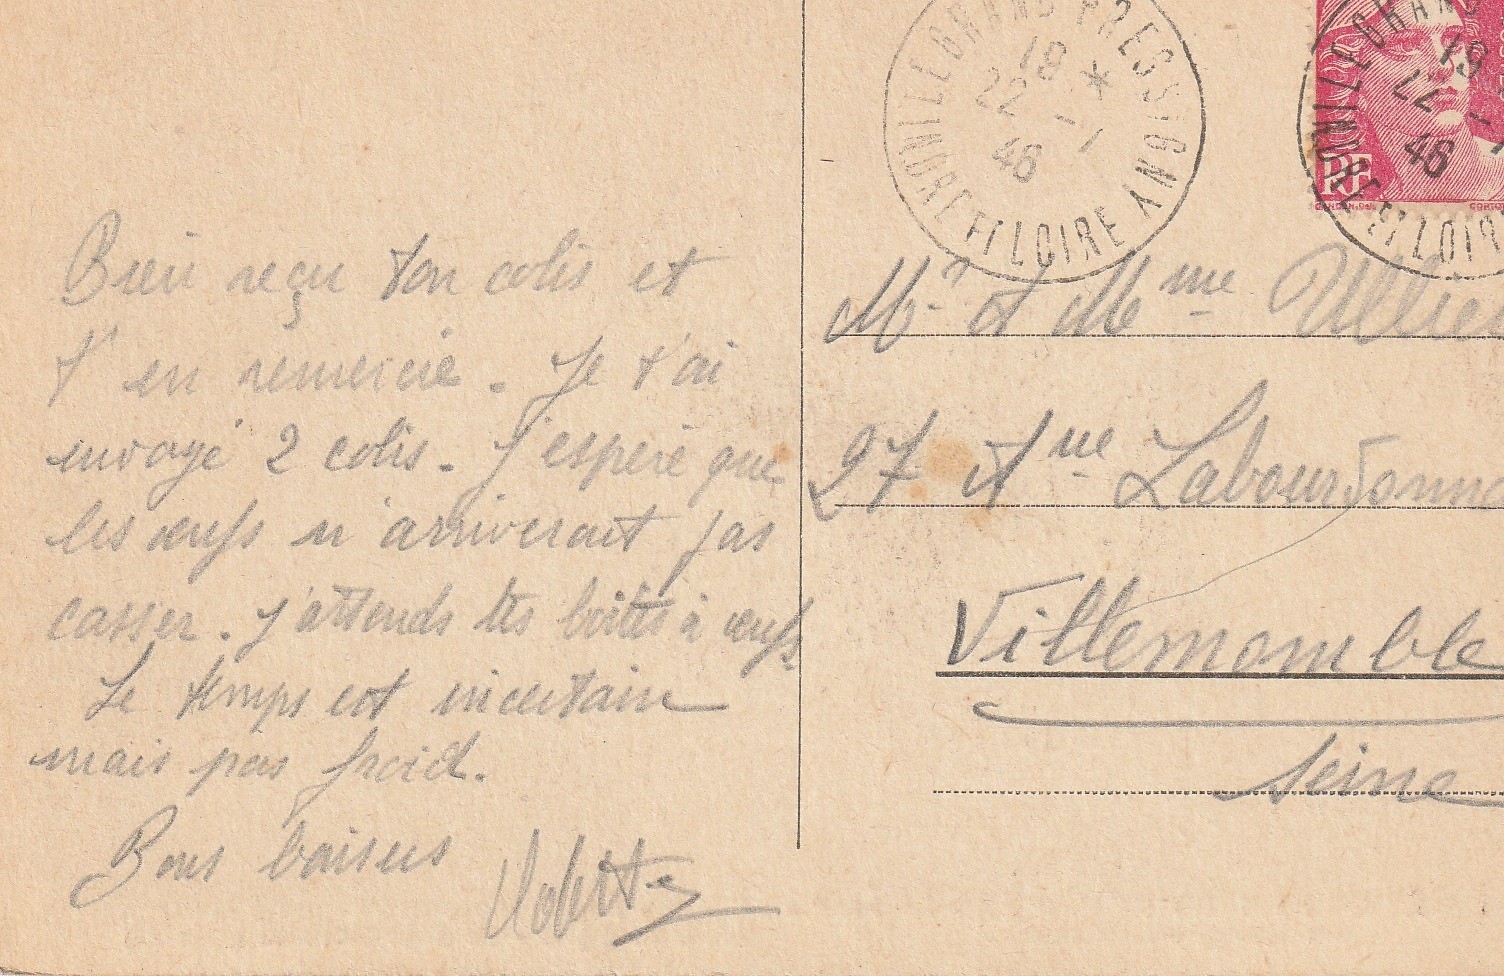 LE GRAND PRESSIGNY
19 *
22 - 1
46
INDRE ET LOIRE
LE GRAND
19
22 - 1
46
INDRE ET LOIR
RF
Bien reçu ton colis et
t'en remercie. Je t'ai
envoyé 2 colis. J'espère que
les œufs n'arriveront pas
casser. J'attends tes boites à œufs.
Le temps est incertain
mais pas froid.
Bons baisers
Robert
Mr et Mme
27 Aue Labourdonna
Villemomble
Seine